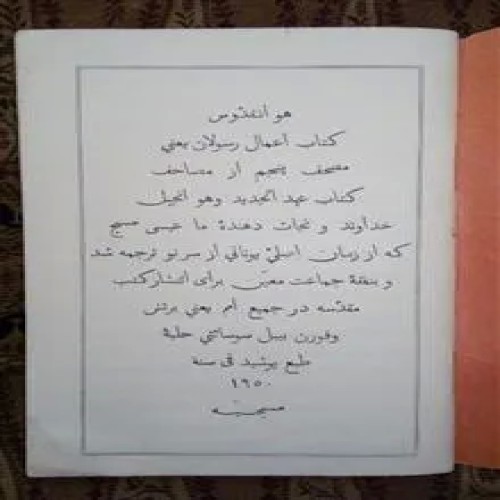 هو القدّوس
کتاب اعمال رسولان یعني
مصحف پنجم از مصاحف
کتاب عهد الجدید وهو انجیل
خداوند و نجات دهندۀ ما عیسی مسیح
که از زبان اصلیٔ یوناني از سر نو ترجمه شد
و بنفقۀ جماعت معیّن برای انتشار کتب
مقدّسه در جمیع امم یعني برتش
وفورن بیبل سوسائتي حلیۀ
طبع پوشید في سنه
۱۹۵۰
مسیحیّه